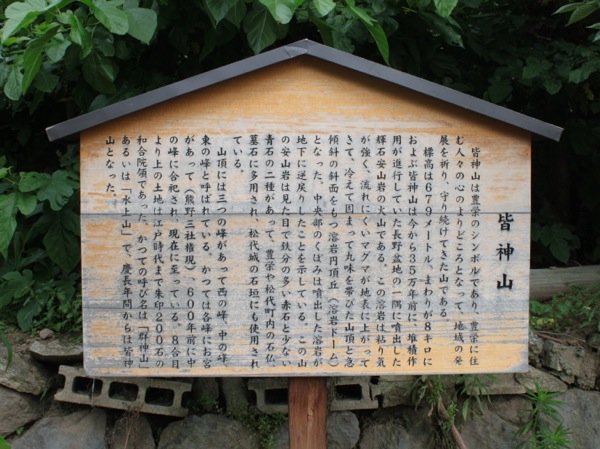 皆神山
皆神山は豊栄のシンボルであり、豊栄に住
む人々の心のよりどころとなって、地域の発
展を祈り、守り続けてきた山である。
標高は679メートル、まわりが8キロに
およぶ皆神山は今から35万年前に、堆積作
用が進行していた長野盆地の一隅に噴出した
輝石安山岩の火山である。この溶岩は粘り気
が強く、流れにくいマグマが地表に上がって
きて、冷えて固まって丸味を帯びた山頂と急
傾斜の斜面をもつ溶岩円頂丘(溶岩ドーム)
となった。中央部のくぼみは噴出した溶岩が
地下に逆戻りしたことを示している。この山
の安山岩は見た目で鉄分の多い赤石と少ない
青石の二種があって、豊栄や松代町内の石仏、
墓石に多用され、松代城の石垣にも使用され
ている。
山頂には三つの峰があって西の峰、中の峰、
東の峰と呼ばれている。かつては各峰にお宮
があって(熊野三社権現)600年前に中
の峰に合祀され、現在に至っている。8合目
より上の土地は江戸時代まで朱印200石の
和合院領であった。かつての呼び名は「群神山」
あるいは「水上山」で、慶長年間からは皆神
山となった。